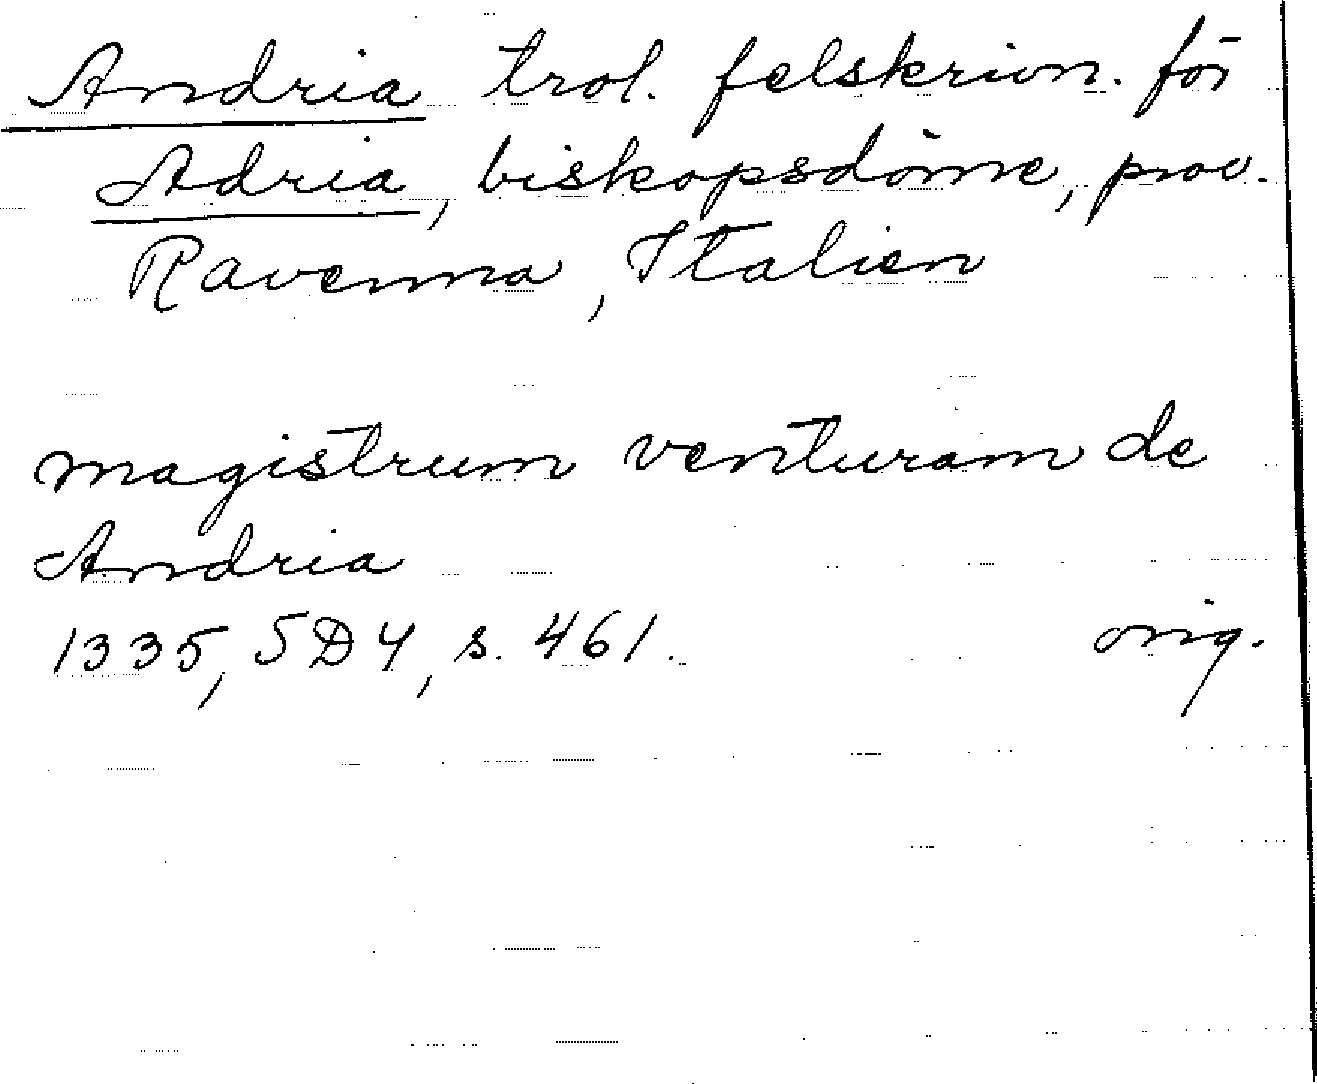 Andria trol. felskrivn. för
Adria, biskopsdöme, prov.
Ravenna, Italien
magistrum venturam de
Andria
1335, SD 4, s. 461. orig.